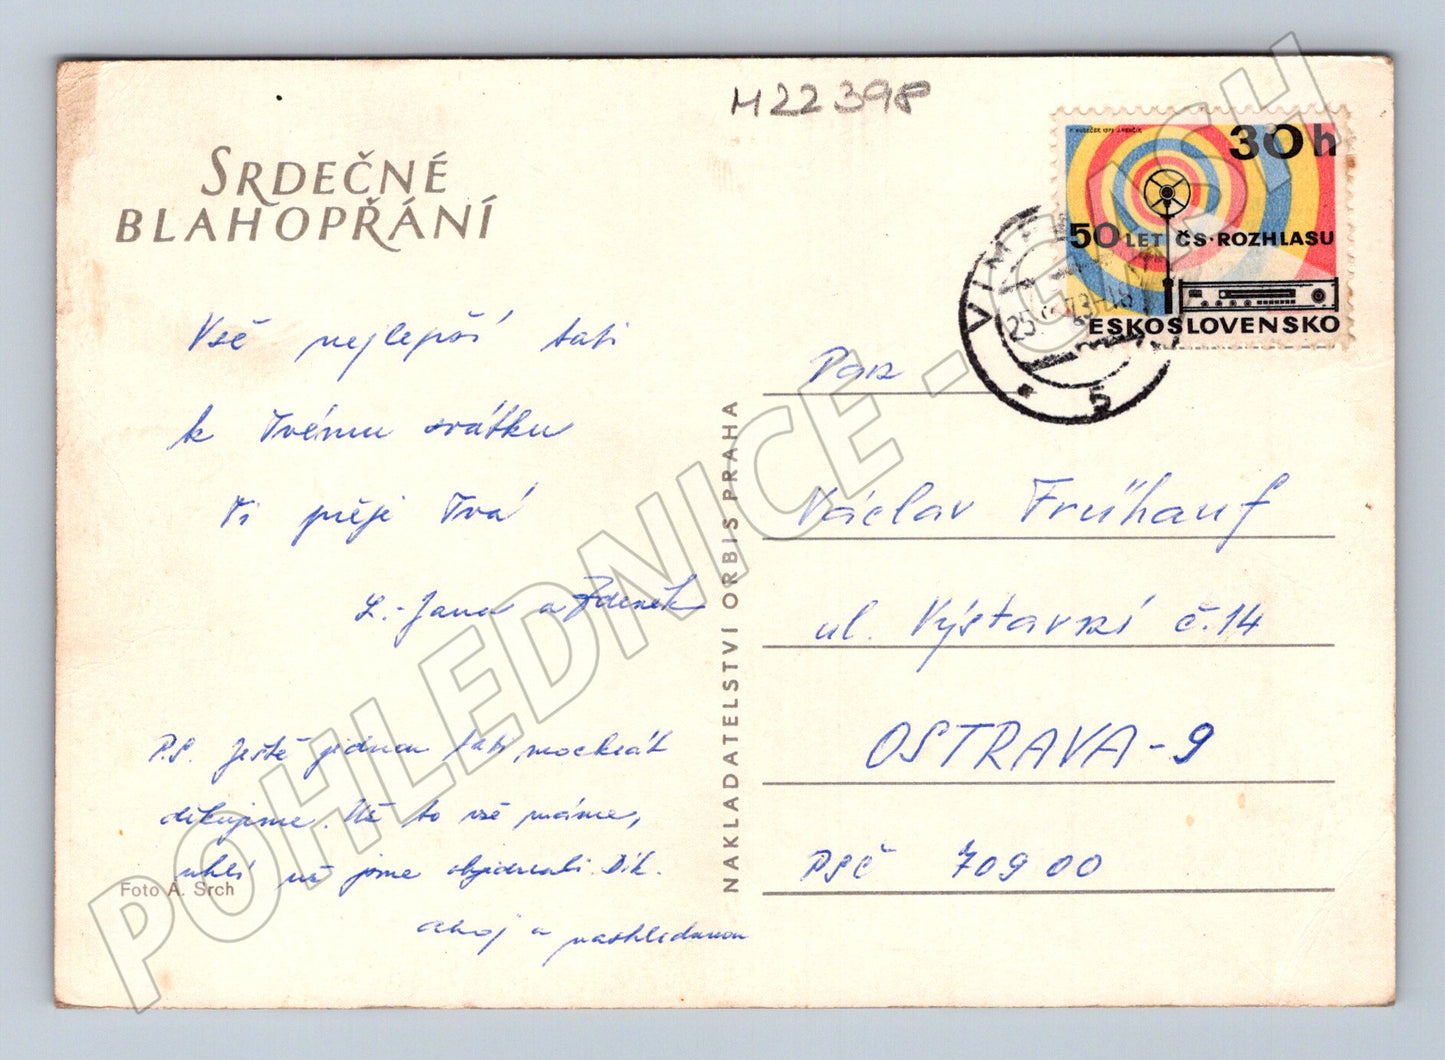 M22398
SRDEČNÉ
BLAHOPŘÁNÍ
30h
50 LET ČS·ROZHLASU
ČESKOSLOVENSKO
VIMPE
25. 73-18
5
Vše nejlepší tati
k Tvému svátku
Ti přeje Tvá
L.-Jana a Zdeněk
P.S. Ještě jednou tati mockrát
děkujeme. Už to vše máme,
uhlí už jsme objednali. Dík.
ahoj a nashledanou
Foto A. Srch
NAKLADATELSTVÍ ORBIS PRAHA
Pan
Václav Frühauf
ul. Výstavní č.14
OSTRAVA-9
PSČ 709 00
POHLEDNICE - GULASH